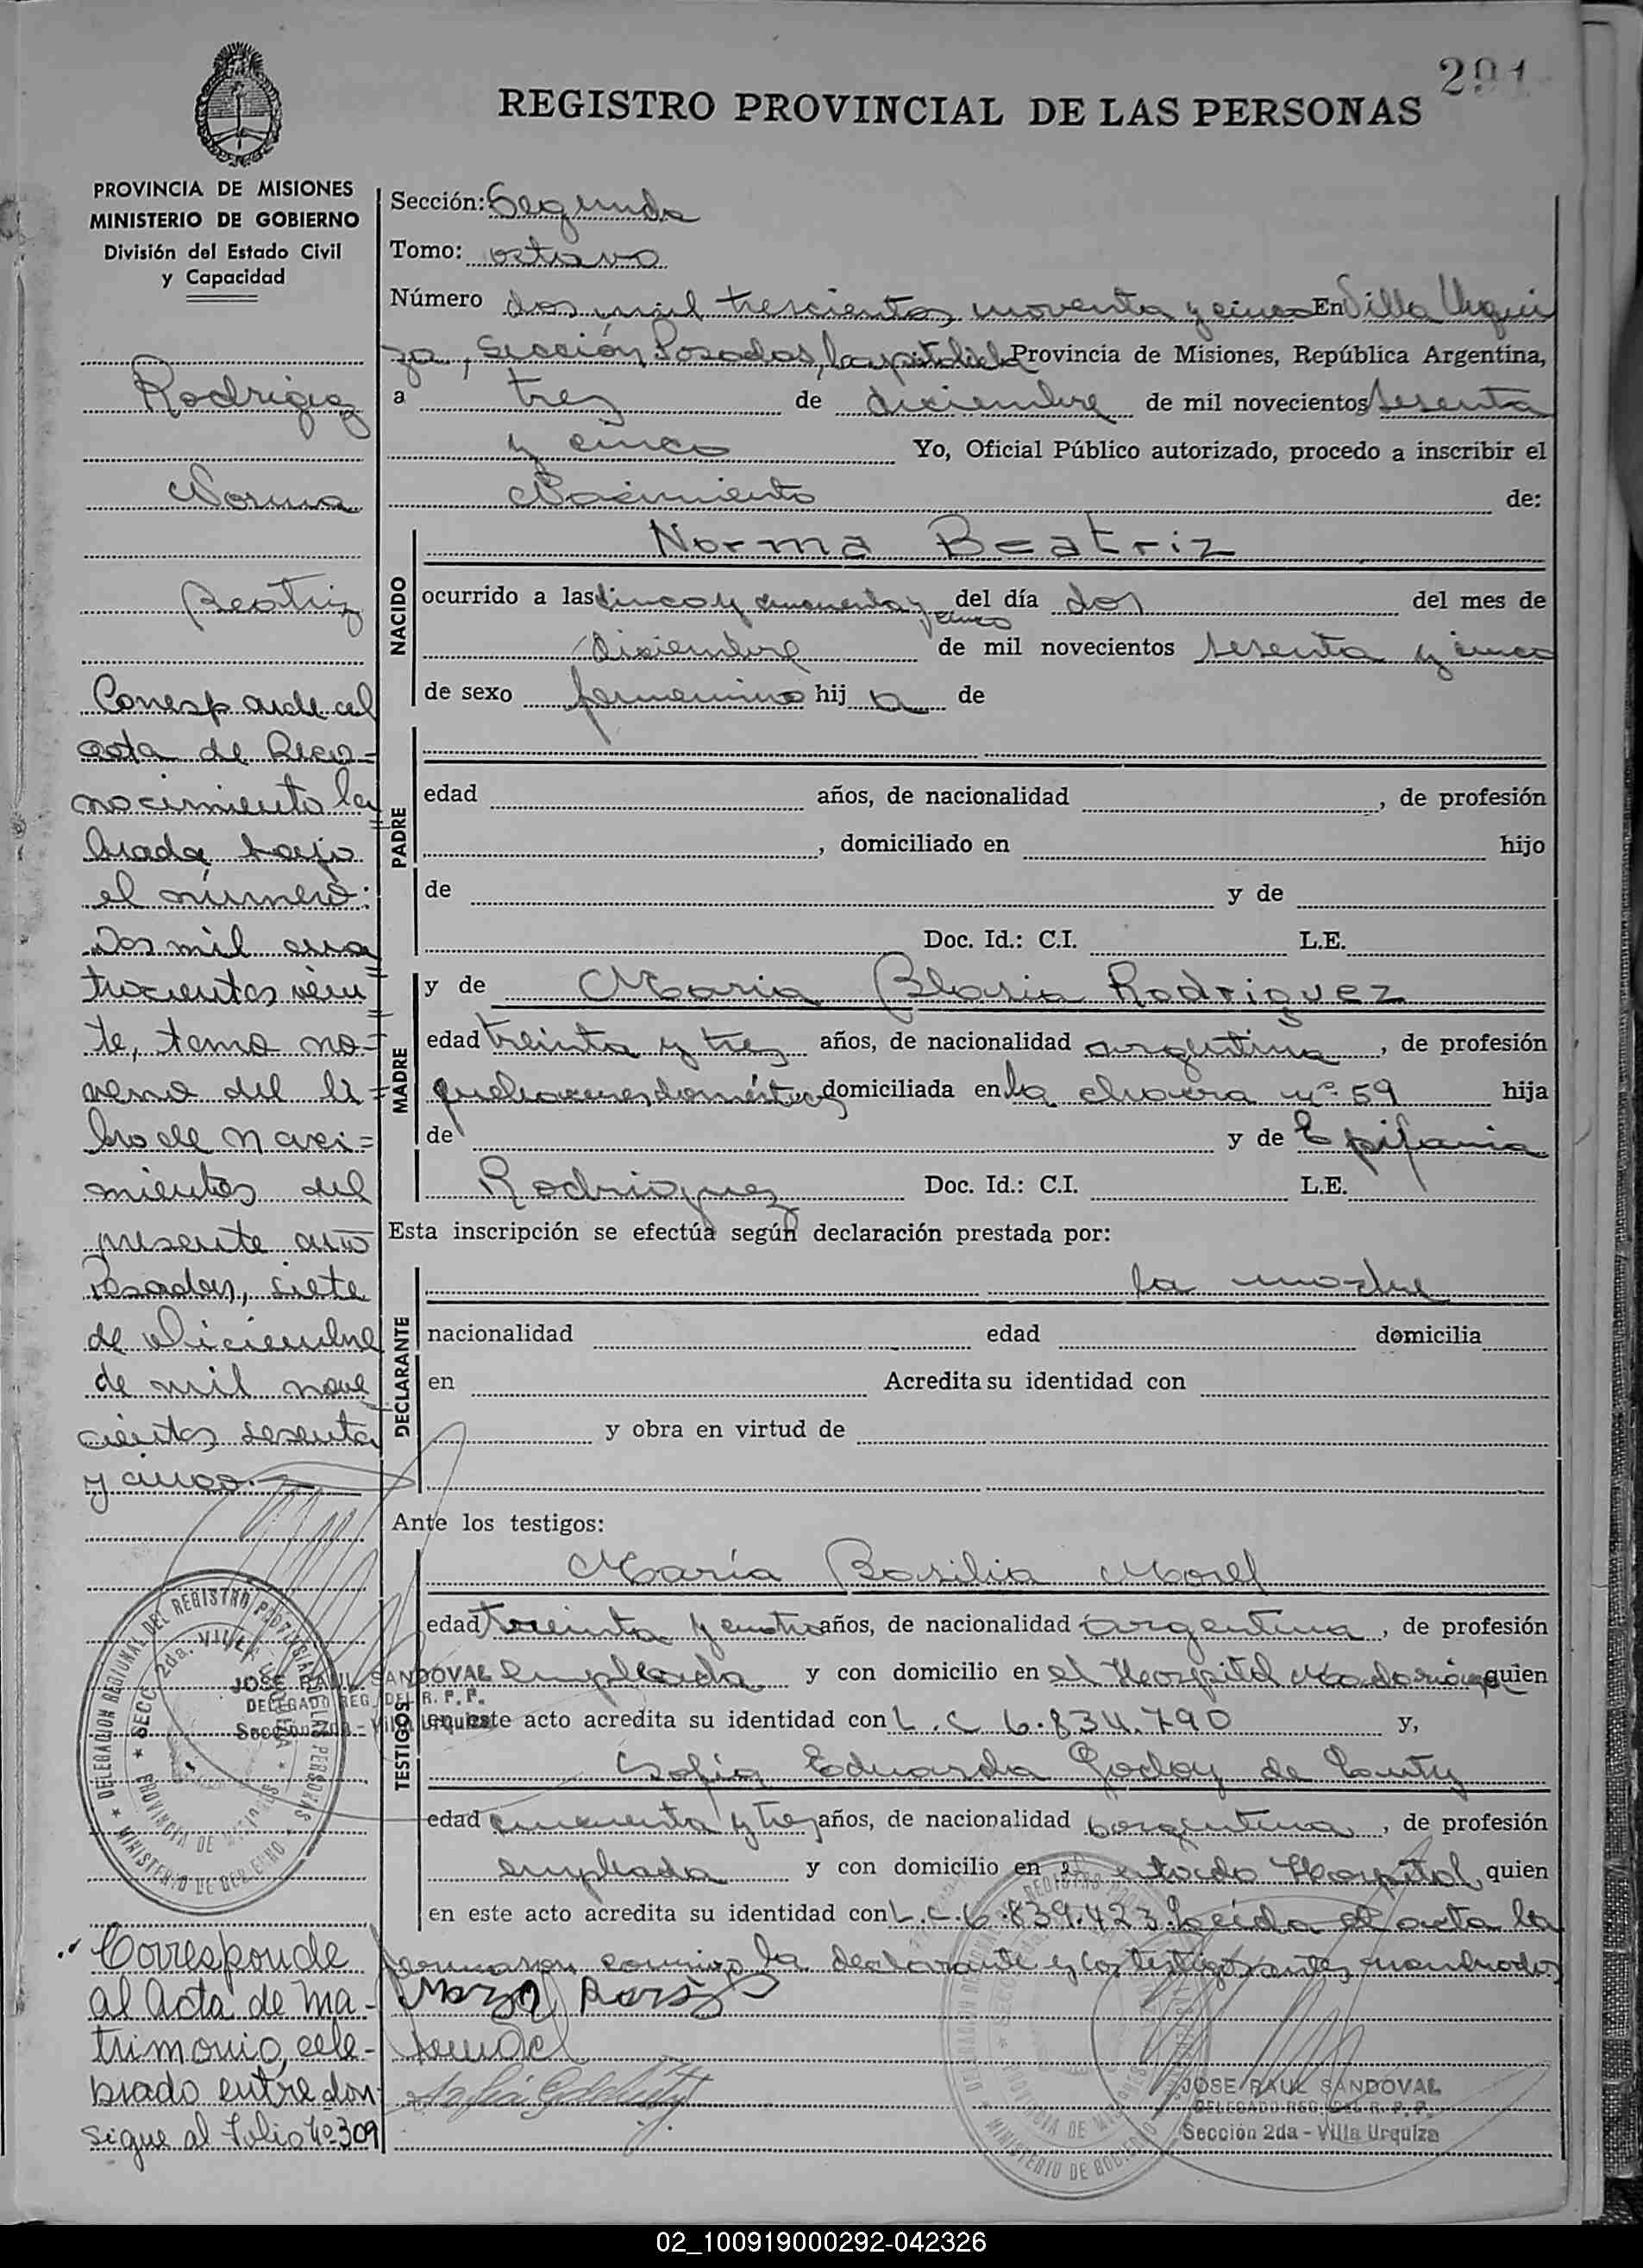 291
REGISTRO PROVINCIAL DE LAS PERSONAS
PROVINCIA DE MISIONES
MINISTERIO DE GOBIERNO
División del Estado Civil
y Capacidad
Rodriguez
Norma
Beatriz
Corresponde al
acta de Reco-
nocimiento la=
brada bajo
el número:
Dos mil cua
trocientos vein=
te, tomo no=
veno del li=
bro de naci=
mientos del
presente año
Posadas, siete
de diciembre
de mil nove
cientos sesenta
y cinco.
Corresponde
al Acta de Ma-
trimonio, cele-
brado entre don
sigue al folio Nº 309
Sección: Segunda
Tomo: octavo
Número dos mil trescientos noventa y cinco En Villa Urqui
za, Sección Posadas, Capital de la Provincia de Misiones, República Argentina,
a tres de diciembre de mil novecientos sesenta
y cinco Yo, Oficial Público autorizado, procedo a inscribir el
Nacimiento de:
NACIDO
Norma Beatriz
ocurrido a las cinco y cincuenta y cinco del día dos del mes de
diciembre de mil novecientos sesenta y cinco
de sexo femenino hij a de
PADRE
edad años, de nacionalidad , de profesión
, domiciliado en hijo
de y de
Doc. Id.: C.I. L.E.
MADRE
y de Maria Blasia Rodriguez
edad treinta y tres años, de nacionalidad argentina , de profesión
quehaceres domésticos domiciliada en la chacra nº 59 hija
de y de Epifania
Rodriguez Doc. Id.: C.I. L.E.
Esta inscripción se efectúa según declaración prestada por:
DECLARANTE
la madre
nacionalidad edad domicilia
en Acredita su identidad con
y obra en virtud de
Ante los testigos:
TESTIGOS
María Basilia Morel
edad treinta y cuatro años, de nacionalidad argentina , de profesión
empleada y con domicilio en el Hospital Madariaga quien
en este acto acredita su identidad con L.C 6.834.790 y,
Sofia Eduarda Godoy de
edad cincuenta y tres años, de nacionalidad argentina , de profesión
empleada y con domicilio en el citado Hospital quien
en este acto acredita su identidad con L.C.6.839.423. Leída el acta la
firmaron conmigo la declarante y los testigos antes nombrados
DELEGACION REGIONAL DEL REGISTRO PROVINCIAL DE LAS PERSONAS
MINISTERIO DE GOBIERNO
SECC. 2da. VILLA URQUIZA
PROVINCIA DE MISIONES
JOSE RAUL SANDOVAL
DELEGADO REG. DEL R. P. P.
Sección 2da - Villa Urquiza
JOSE RAUL SANDOVAL
DELEGADO REG. DEL R. P. P.
Sección 2da - Villa Urquiza
02_100919000292-042326